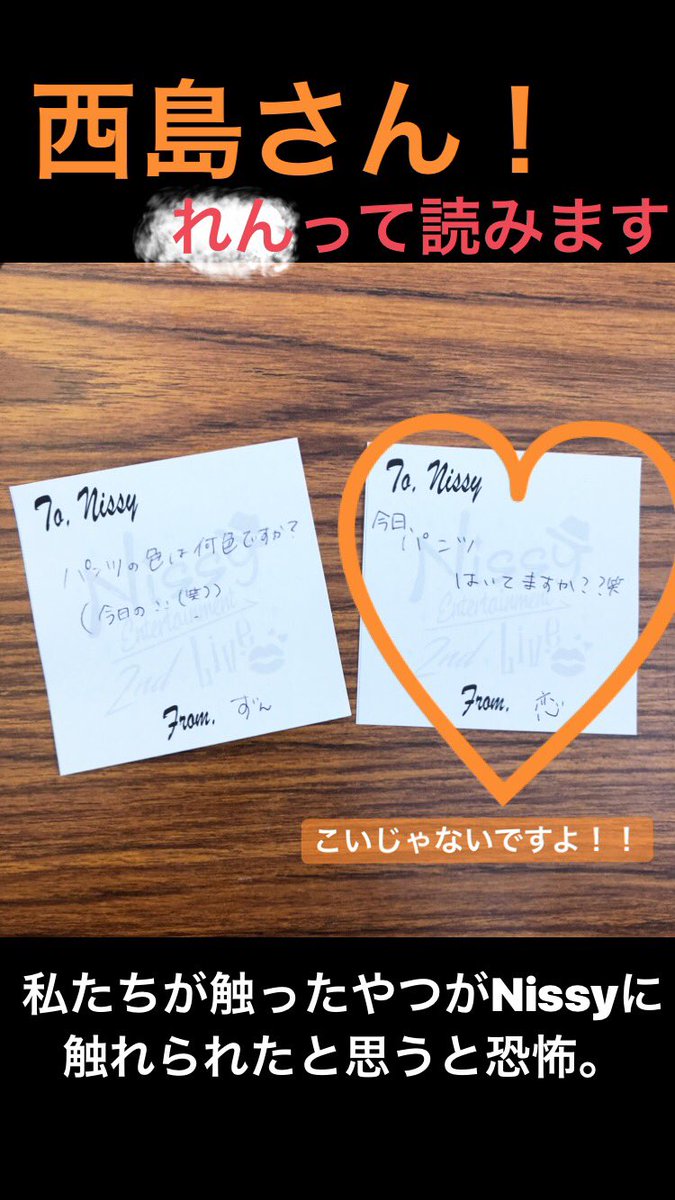 西島さん！
れんって読みます
To, Nissy
パンツの色は何色ですか?
(今日の!!(笑))
Nissy
Entertainment
2nd Live
From, ずん
To, Nissy
今日、
パンツ
はいてますか??笑
Nissy
Entertainment
2nd Live
From, 恋
こいじゃないですよ！！
私たちが触ったやつがNissyに
触れられたと思うと恐怖。